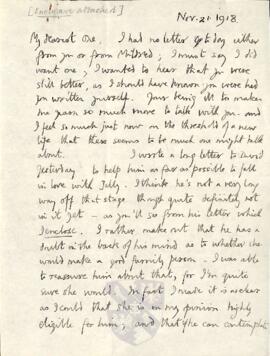 [Enclosure attached]
Nov. 21 1918
My dearest one. I had no letter to-day either
from you or from Mildred; I must say I did
want one, I wanted to hear that you were
still better, as I should have known you were had
you written yourself. Your being ill to makes
me yearn so much more to talk with you - and I
feel so much just now on the threshold of a new
life that there seems to be much one might talk
about. I wrote a long letter to David
yesterday to help him as far as possible to fall
in love with Jelly. I think he's not a very long
way off that stage though quite definitely not
in it yet - as you'll see from his letter which
I enclose. I rather make out that he has a
doubt in the back of his mind as to whether she
would make a good family person. I was able
to reassure him about that, for I'm quite
sure she would. In fact I made it as clear
as I could that she is in my opinion highly
eligible for him; and that if he can contemplate